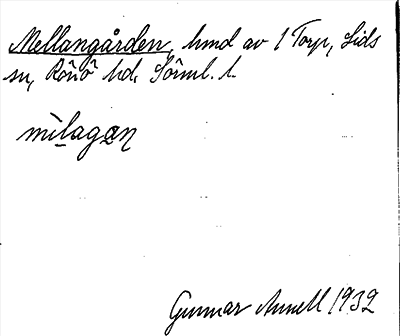 Mellangården, hmd av 1 Torp, Lids
sn, Rönö hd, Sörml. l.
milagan
Gunnar Annell 1932